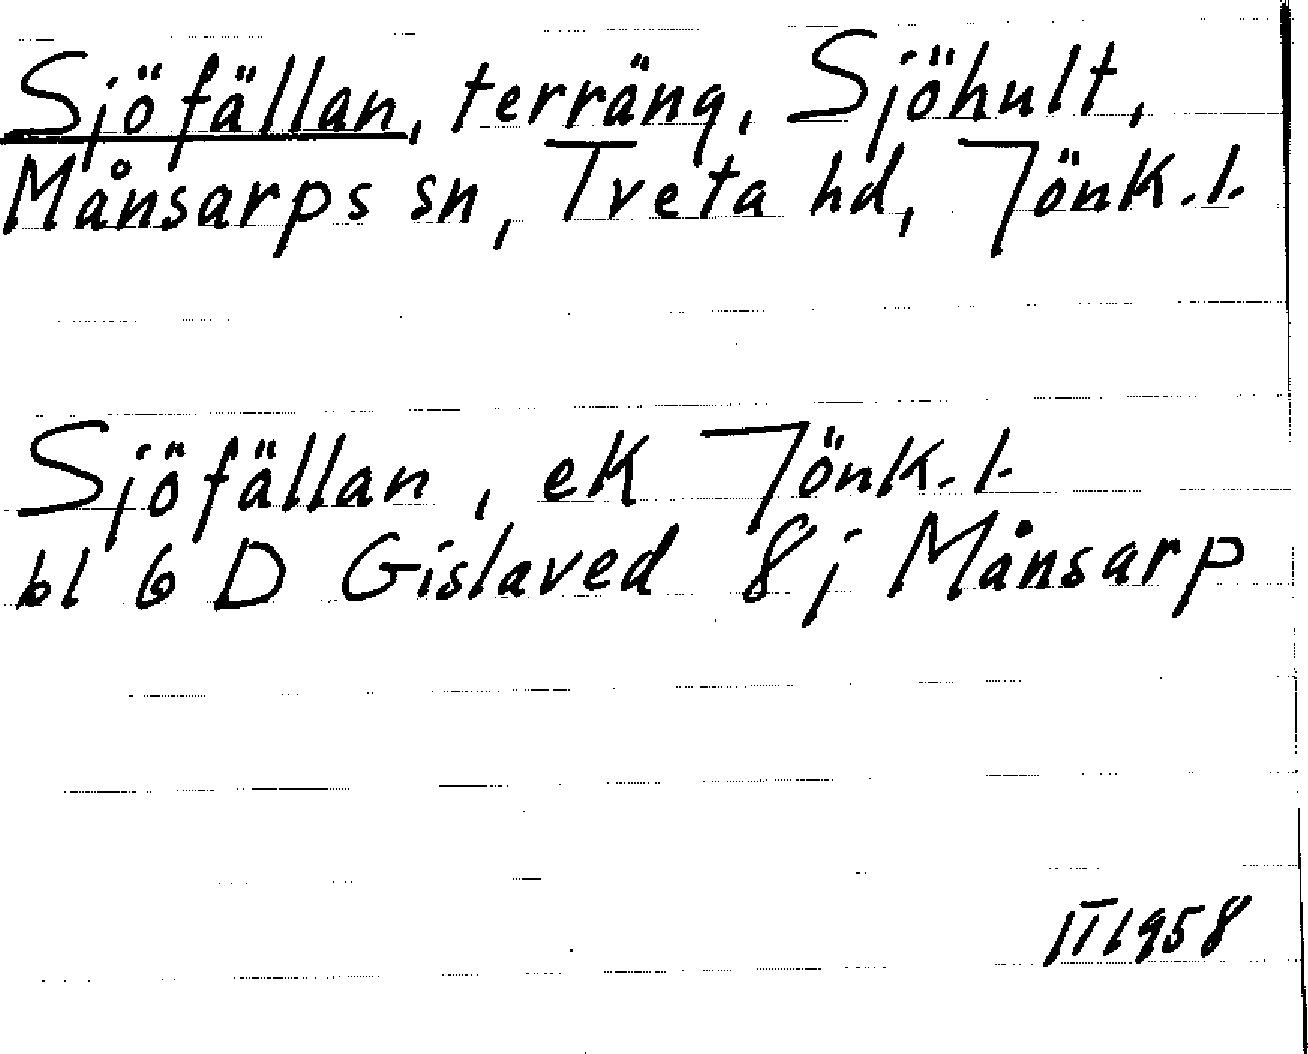 Sjöfällan, terräng, Sjöhult,
Månsarps sn, Tveta hd, Jönk.l.
Sjöfällan, ek Jönk.l.
bl 6 D Gislaved 8j Månsarp
1958